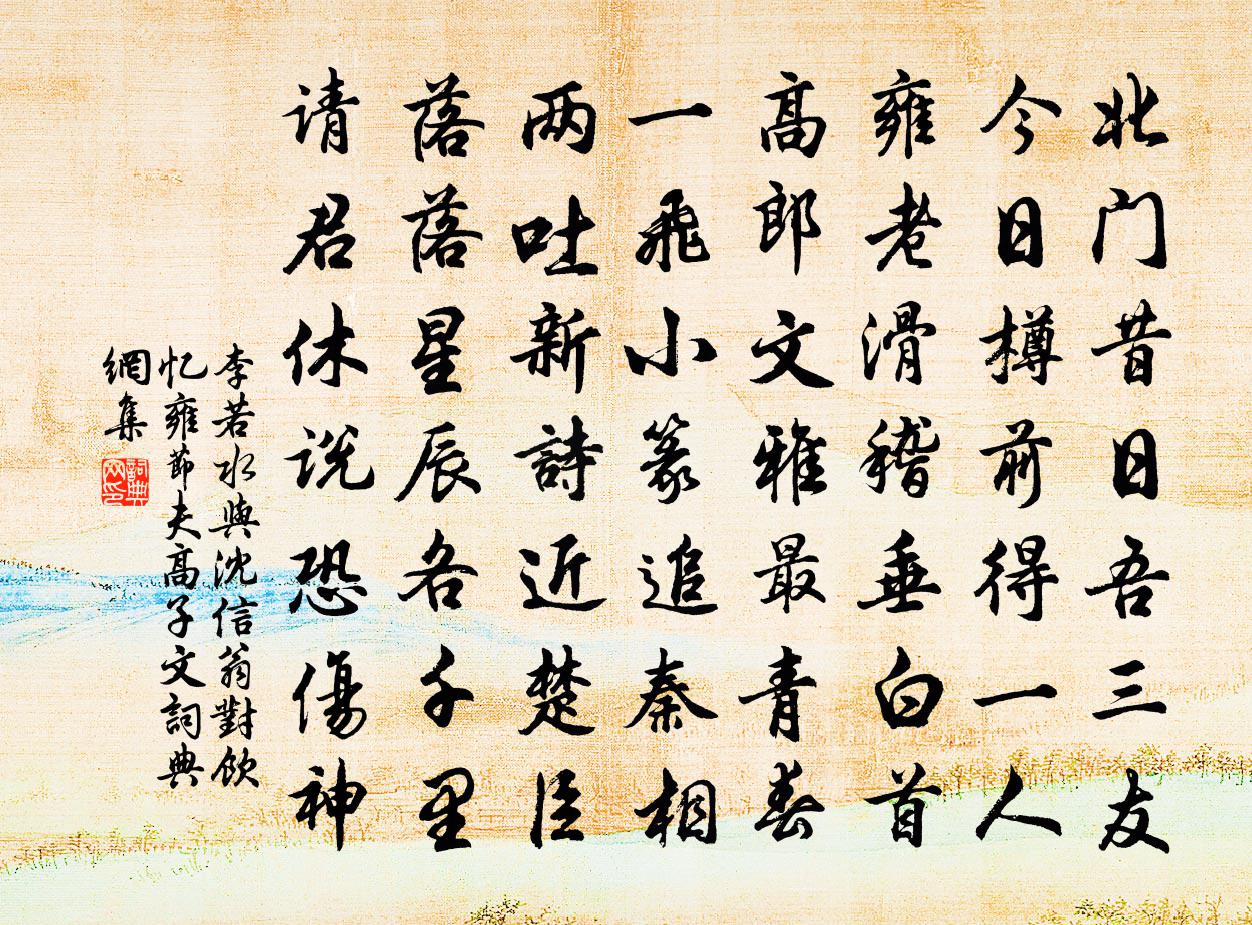 北门昔日吾三友
今日樽前得一人
雍老滑稽垂白首
高郎文雅最青春
一飛小篆追秦相
两吐新詩近楚臣
落落星辰各千里
请君休说恐傷神
李若水與沈信翁對飲
忆雍節夫高子文詞典
網集
詞典
网印